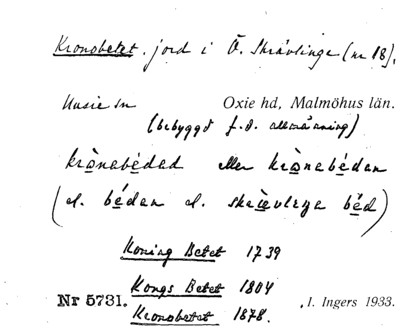 Kronobetet. jord i Ö. Skrävlinge (nr 18),
Husie sn Oxie hd, Malmöhus län.
(bebyggd f.d. allmänning)
krònabédad eller krònabédan
(el. bédan el. skrævliga béd)
Koning Betet 1739
Kongs Betet 1804
Nr 5731. Kronobetet 1878. I. Ingers 1933.